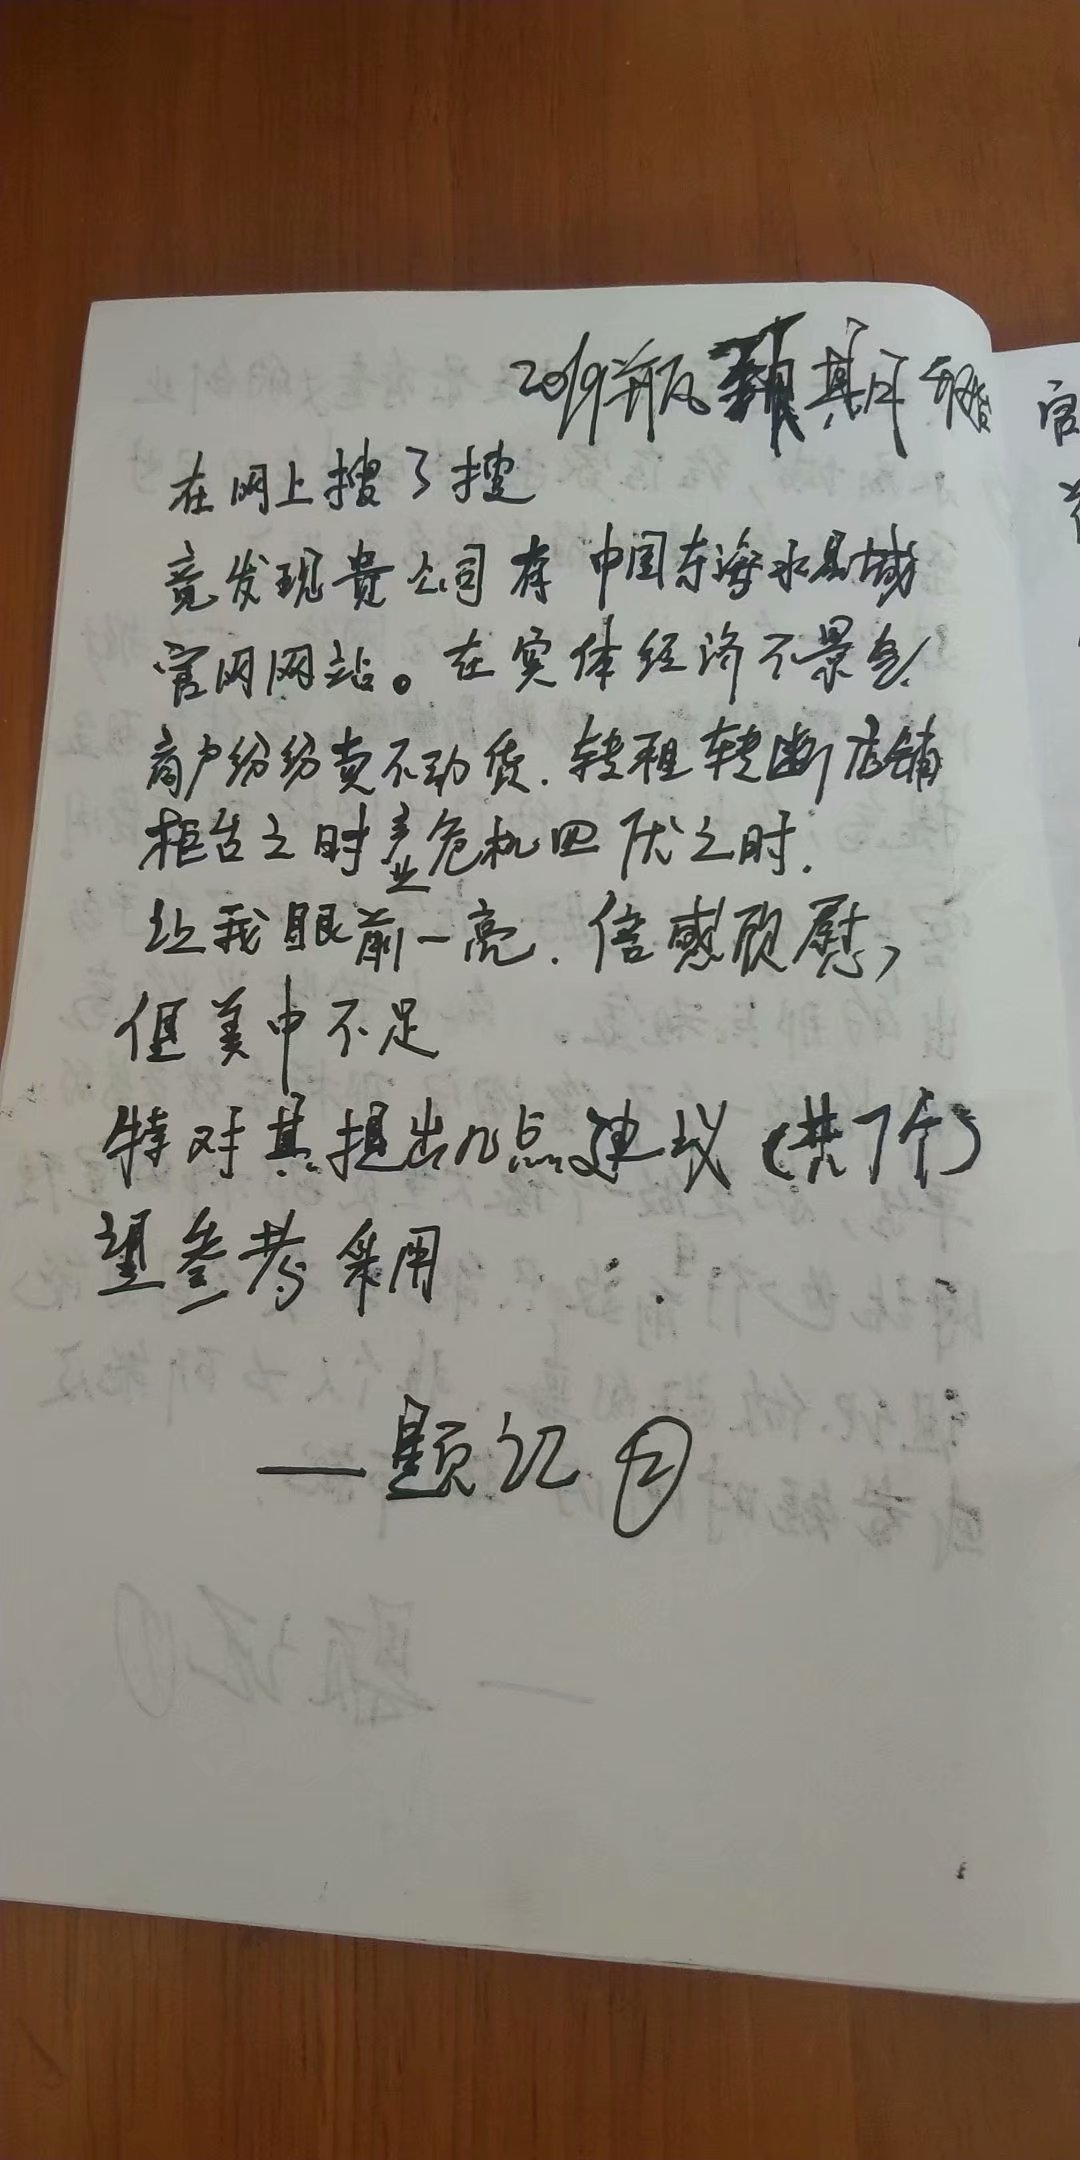 2019
在网上搜了搜
竟发现贵公司有中国东海水晶城
官网网站。在实体经济不景气
商户纷纷卖不动货.转租转断店铺
柜台之时产业危机四伏之时.
让我眼前一亮.倍感欣慰,
但美中不足
特对其提出几点建议(共7个)
望参考采用
—题记②
官